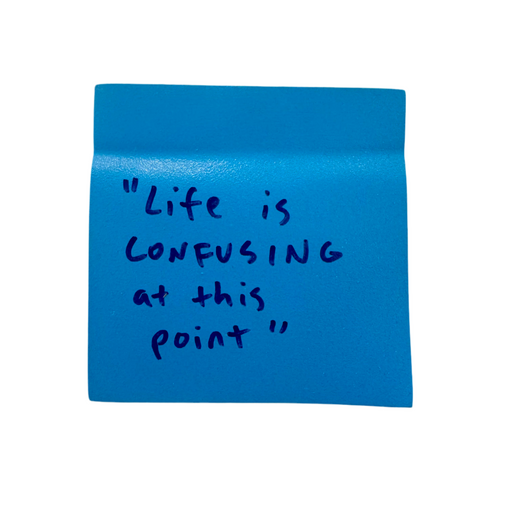 "Life is
CONFUSING
at this
point"